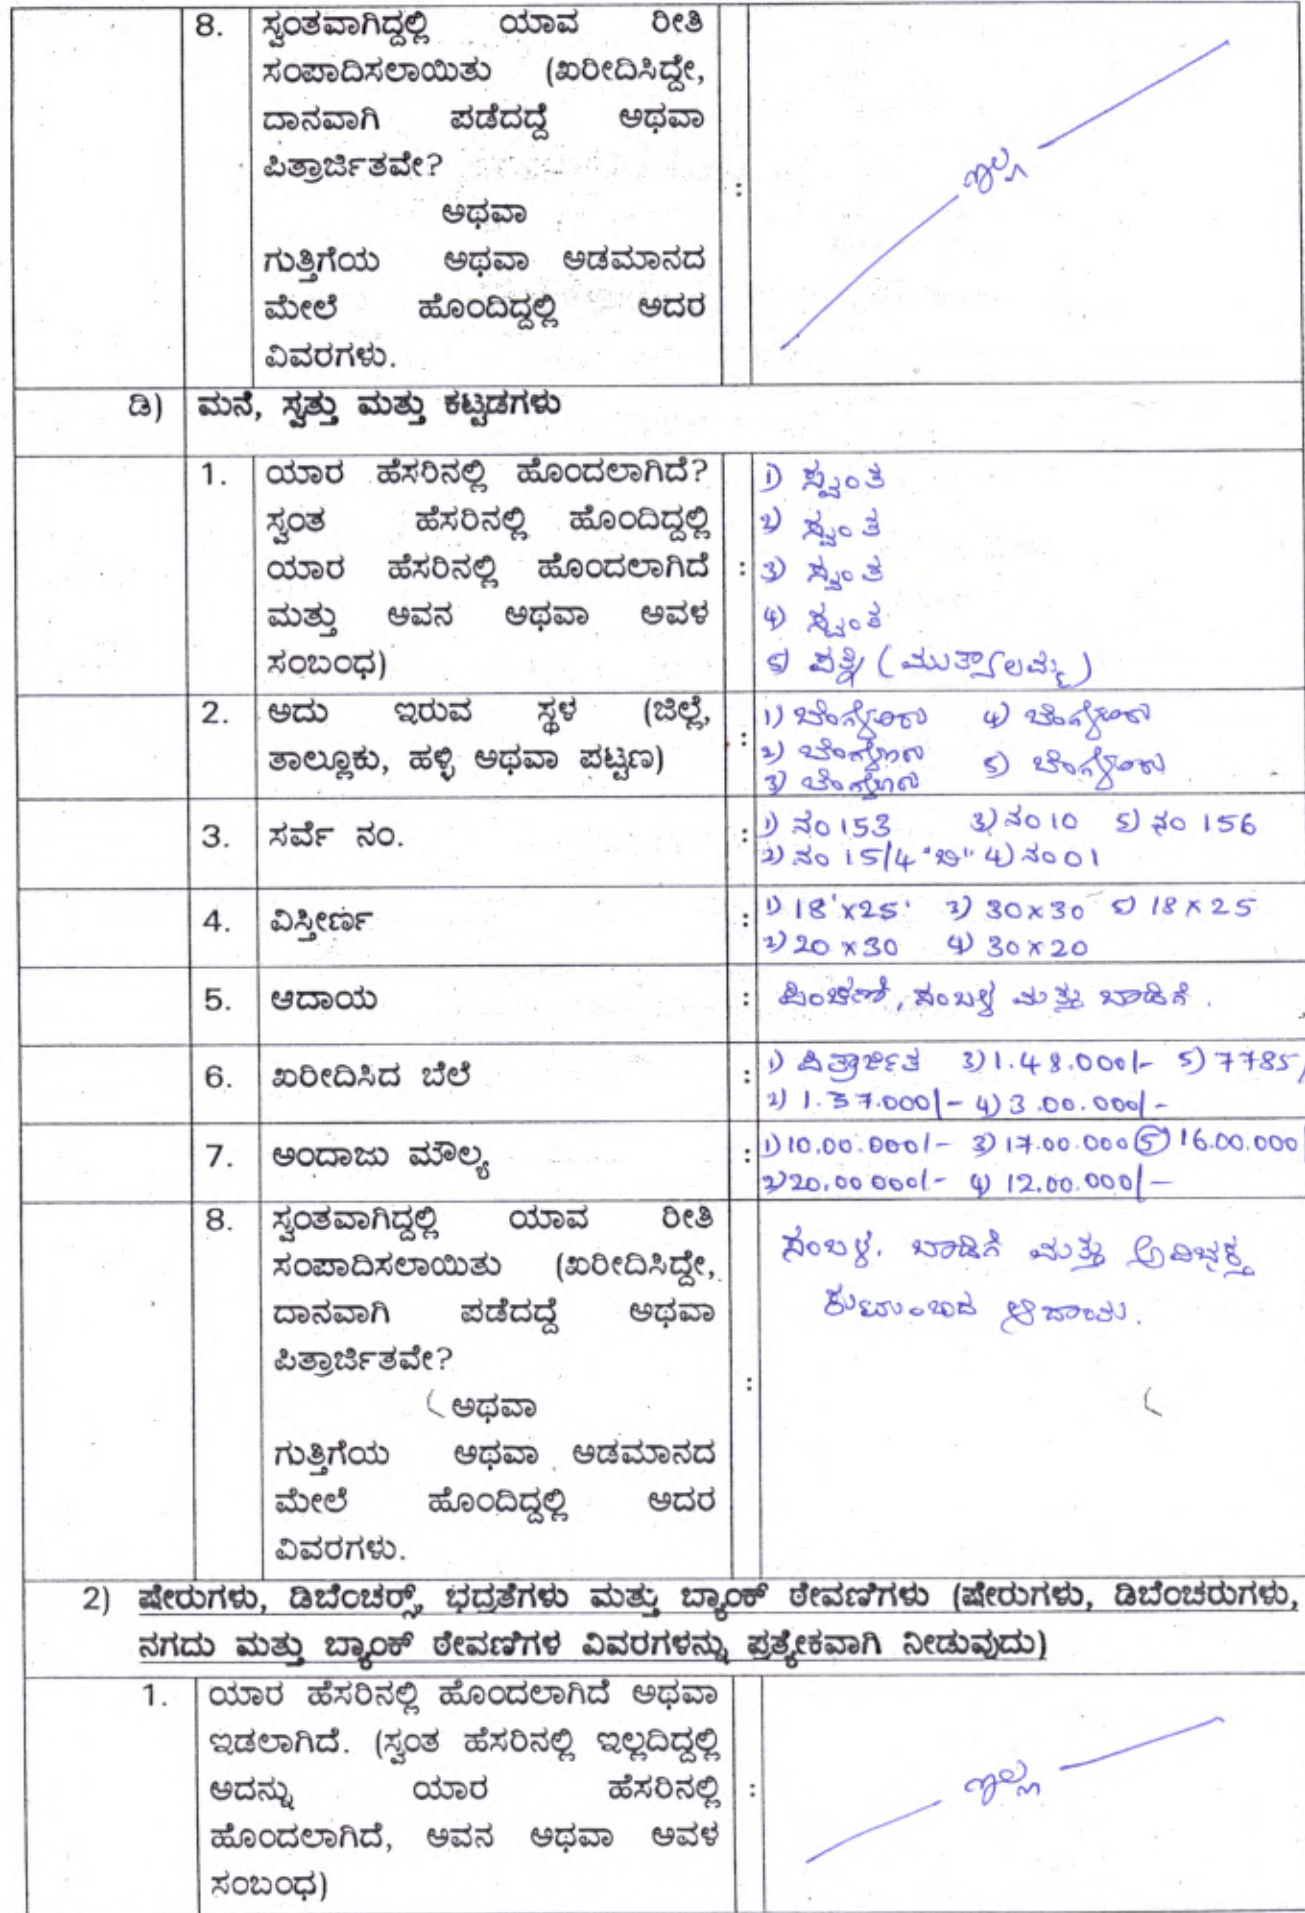 8. ಸ್ವಂತವಾಗಿದ್ದಲ್ಲಿ ಯಾವ ರೀತಿ
ಸಂಪಾದಿಸಲಾಯಿತು (ಖರೀದಿಸಿದ್ದೇ,
ದಾನವಾಗಿ ಪಡೆದದ್ದೆ ಅಥವಾ
ಪಿತ್ರಾರ್ಜಿತವೇ?
ಅಥವಾ
ಗುತ್ತಿಗೆಯ ಅಥವಾ ಅಡಮಾನದ
ಮೇಲೆ ಹೊಂದಿದ್ದಲ್ಲಿ ಅದರ
ವಿವರಗಳು.
: ಇಲ್ಲ
ಡಿ) ಮನೆ, ಸ್ವತ್ತು ಮತ್ತು ಕಟ್ಟಡಗಳು
1. ಯಾರ ಹೆಸರಿನಲ್ಲಿ ಹೊಂದಲಾಗಿದೆ?
ಸ್ವಂತ ಹೆಸರಿನಲ್ಲಿ ಹೊಂದಿದ್ದಲ್ಲಿ
ಯಾರ ಹೆಸರಿನಲ್ಲಿ ಹೊಂದಲಾಗಿದೆ
ಮತ್ತು ಅವನ ಅಥವಾ ಅವಳ
ಸಂಬಂಧ)
: 1) ಸ್ವಂತ
2) ಸ್ವಂತ
3) ಸ್ವಂತ
4) ಸ್ವಂತ
5) ಪತ್ನಿ (ಮುತ್ಯಾಲಮ್ಮ)
2. ಅದು ಇರುವ ಸ್ಥಳ (ಜಿಲ್ಲೆ,
ತಾಲ್ಲೂಕು, ಹಳ್ಳಿ ಅಥವಾ ಪಟ್ಟಣ)
: 1) ಬೆಂಗ್ಳೂರು 4) ಬೆಂಗ್ಳೂರು
2) ಬೆಂಗ್ಳೂರು 5) ಬೆಂಗ್ಳೂರು
3) ಬೆಂಗ್ಳೂರು
3. ಸರ್ವೆ ನಂ.
: 1) ನಂ 153 3) ನಂ 10 5) ನಂ 156
2) ನಂ 15/4 "ಬಿ" 4) ನಂ 01
4. ವಿಸ್ತೀರ್ಣ
: 1) 18'x25' 3) 30x30 5) 18x25
2) 20x30 4) 30x20
5. ಆದಾಯ
: ಪಿಂಚಣಿ, ಸಂಬಳ ಮತ್ತು ಬಾಡಿಗೆ.
6. ಖರೀದಿಸಿದ ಬೆಲೆ
: 1) ಪಿತ್ರಾರ್ಜಿತ 3) 1.48.000/- 5) 7785/
2) 1.37.000/- 4) 3.00.000/-
7. ಅಂದಾಜು ಮೌಲ್ಯ
: 1) 10.00.000/- 3) 17.00.000 5) 16.00.000/
2) 20.00 000/- 4) 12.00.000/-
8. ಸ್ವಂತವಾಗಿದ್ದಲ್ಲಿ ಯಾವ ರೀತಿ
ಸಂಪಾದಿಸಲಾಯಿತು (ಖರೀದಿಸಿದ್ದೇ,
ದಾನವಾಗಿ ಪಡೆದದ್ದೆ ಅಥವಾ
ಪಿತ್ರಾರ್ಜಿತವೇ?
ಅಥವಾ
ಗುತ್ತಿಗೆಯ ಅಥವಾ ಅಡಮಾನದ
ಮೇಲೆ ಹೊಂದಿದ್ದಲ್ಲಿ ಅದರ
ವಿವರಗಳು.
: ಸಂಬಳ. ಬಾಡಿಗೆ ಮತ್ತು ಅವಿಭಕ್ತ
ಕುಟುಂಬದ ಆದಾಯ.
2) ಷೇರುಗಳು, ಡಿಬೆಂಚರ್ಸ್, ಭದ್ರತೆಗಳು ಮತ್ತು ಬ್ಯಾಂಕ್ ಠೇವಣಿಗಳು (ಷೇರುಗಳು, ಡಿಬೆಂಚರುಗಳು,
ನಗದು ಮತ್ತು ಬ್ಯಾಂಕ್ ಠೇವಣಿಗಳ ವಿವರಗಳನ್ನು ಪ್ರತ್ಯೇಕವಾಗಿ ನೀಡುವುದು)
1. ಯಾರ ಹೆಸರಿನಲ್ಲಿ ಹೊಂದಲಾಗಿದೆ ಅಥವಾ
ಇಡಲಾಗಿದೆ. (ಸ್ವಂತ ಹೆಸರಿನಲ್ಲಿ ಇಲ್ಲದಿದ್ದಲ್ಲಿ
ಅದನ್ನು ಯಾರ ಹೆಸರಿನಲ್ಲಿ
ಹೊಂದಲಾಗಿದೆ, ಅವನ ಅಥವಾ ಅವಳ
ಸಂಬಂಧ)
: ಇಲ್ಲ